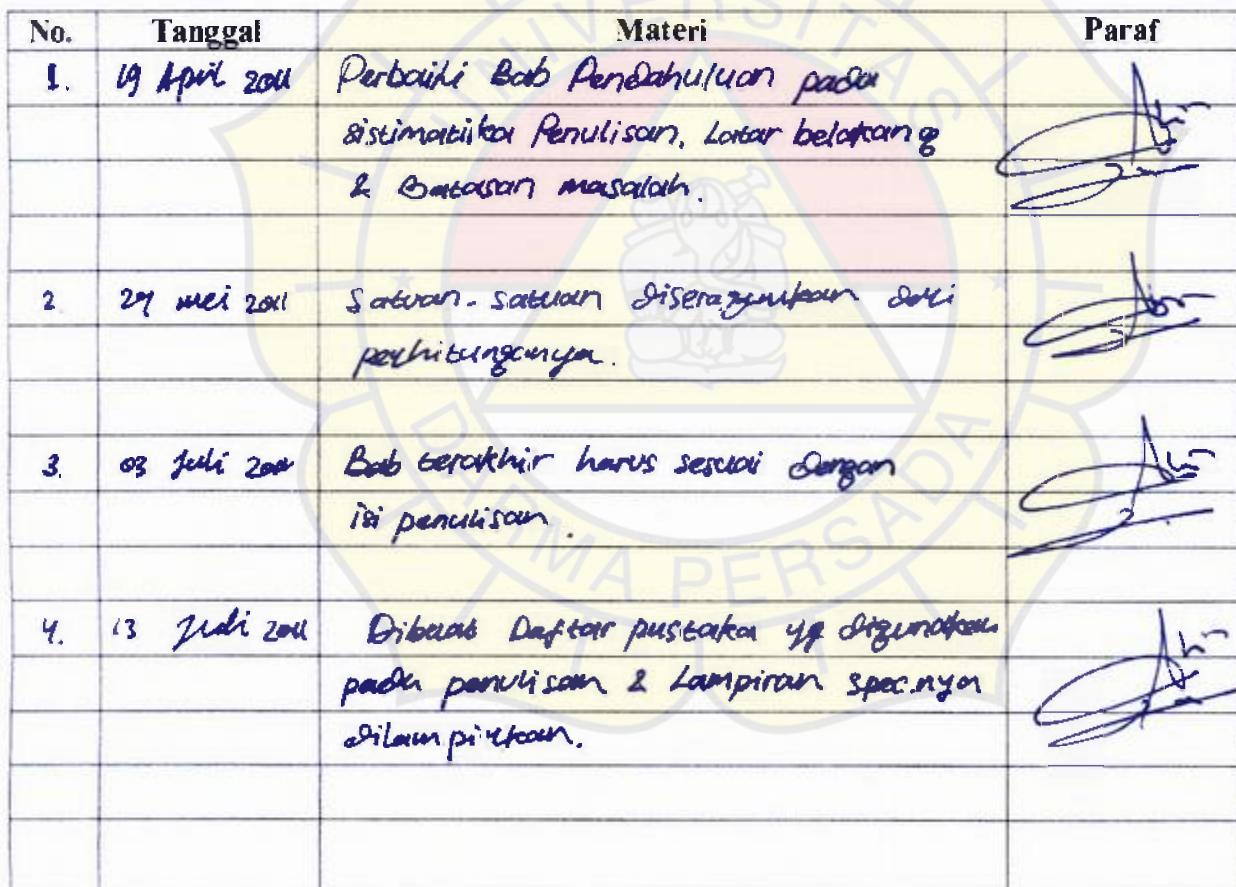 No. Tanggal Materi Paraf
1. 19 April 2011 Perbaiki Bab Pendahuluan pada
sistimatika Penulisan, Latar belakang
& Batasan masalah.
2. mei 2011 Satuan-satuan diseragamkan dari
perhitungannya.
3. 03 Juli 2011 Bab terakhir harus sesuai dengan
isi penulisan.
4. 13 Juli 2011 Dibuat Daftar pustaka yg digunakan
pada penulisan & Lampiran spec.nya
dilampirkan.
UNIVERSITAS
DARMA PERSADA